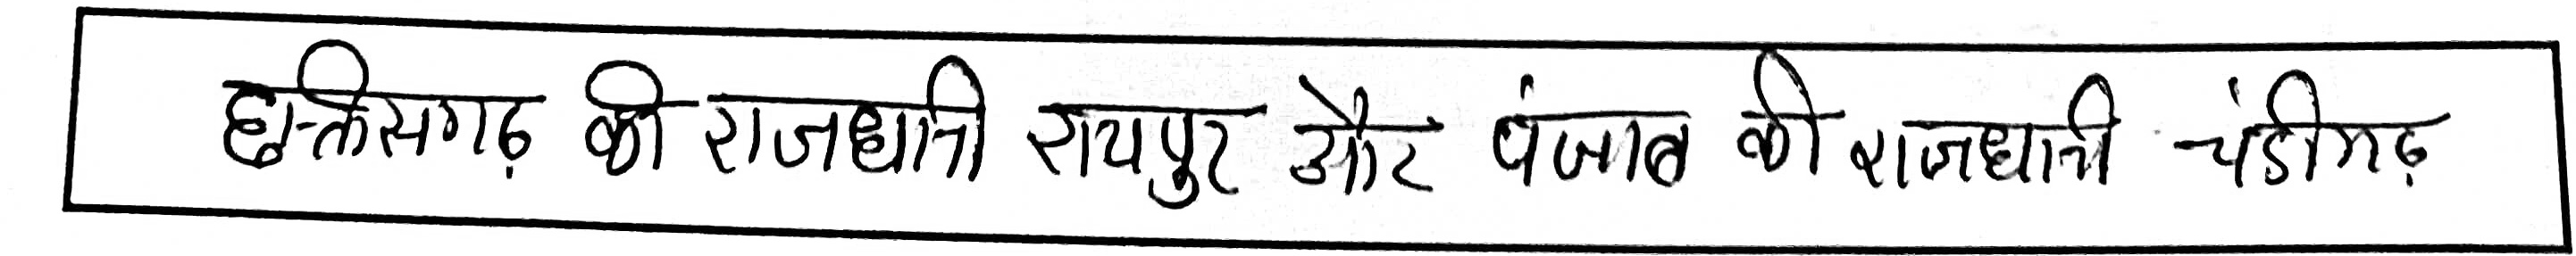 छत्तीसगढ़ की राजधानी रायपुर और पंजाब की राजधानी चंडीगढ़